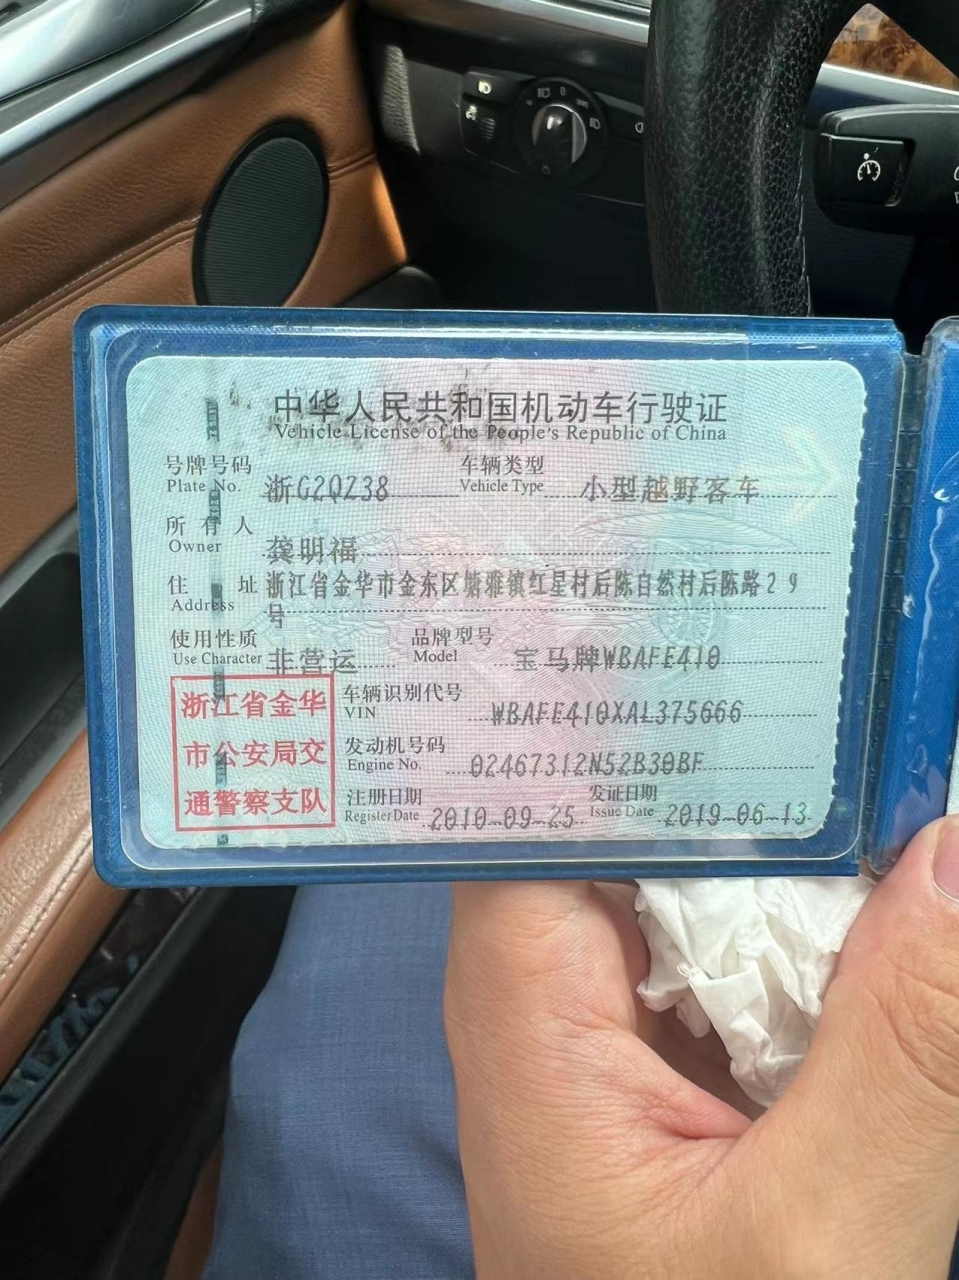 中华人民共和国机动车行驶证
Vehicle License of the People's Republic of China
号牌号码 浙G2QZ38 车辆类型 小型越野客车
Plate No. Vehicle Type
所有人 龚明福
Owner
住址 浙江省金华市金东区塘雅镇红星村后陈自然村后陈路29
Address 号
使用性质 非营运 品牌型号 宝马牌WBAFE410
Use Character Model
浙江省金华
市公安局交
通警察支队
车辆识别代号 WBAFE410XAL375666
VIN
发动机号码 02467312N52B30BF
Engine No.
注册日期 2010-09-25 发证日期 2019-06-13
Register Date Issue Date